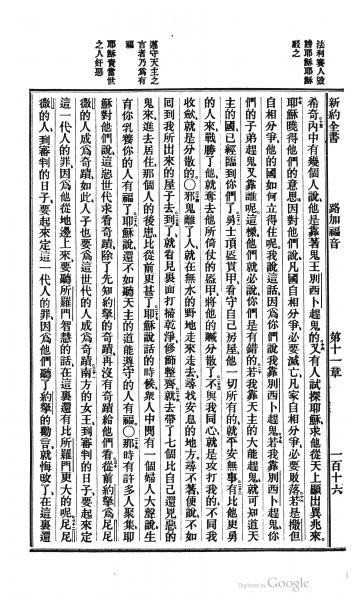 新約全書 路加福音 第十一章 一百十六
法利賽人毀
謗耶穌耶穌
駁之
遵守天主之
言者乃爲有
福
耶穌責當世
之人奸惡
希奇內中有幾個人說他是靠著鬼王別西卜趕鬼的又有人試探耶穌求他從天上顯出異兆來。
耶穌曉得他們的意思因對他們說凡國自相分爭必要滅亡凡家自相分爭必要敗落若是撒但
自相分爭他的國如何立得住呢我說這話因爲你們說我靠別西卜趕鬼若我靠別西卜趕鬼你
們的子弟趕鬼又靠誰呢這樣他們就必說你們是有錯的若我靠天主的大能趕鬼就可知道天
主的國已經臨到你們了勇士頂盔貫甲看守自己房屋他一切所有的就平安無事有比他更勇
的人來戰勝了他就奪去他所倚仗的盔甲將他的贓分散了不與我同心就是攻打我的不同我
收歛就是分散的〇邪鬼離了人就在無水的野地走來走去尋找安息的地方尋不著便說不如
回到我所出來的屋子去到了就看見裏面打掃乾淨修飾整齊就去帶了七個比自己還兇惡的
鬼來進去居住那個人的後患比從前更甚了耶穌說話的時候衆人中間有一個婦人大聲說生
育你乳養你的人有福了耶穌說還不如聽天主的道能遵守的人有福〇那時有許多人聚集耶
穌對他們說這惡世代求看奇蹟除了先知約拏的奇蹟再沒有奇蹟給他們看從前約拏爲尼尼
微的人成爲奇蹟如此人子也要爲這世代的人成爲奇蹟南方的女王到審判的日子要起來定
這一代人的罪因爲他從地邊上來要聽所羅門智慧的話在這裏還有比所羅門更大的呢尼尼
微的人到審判的日子要起來定這一代人的罪因爲他們聽了約拏的勸言就悔改了在這裏還
Digitized by Google